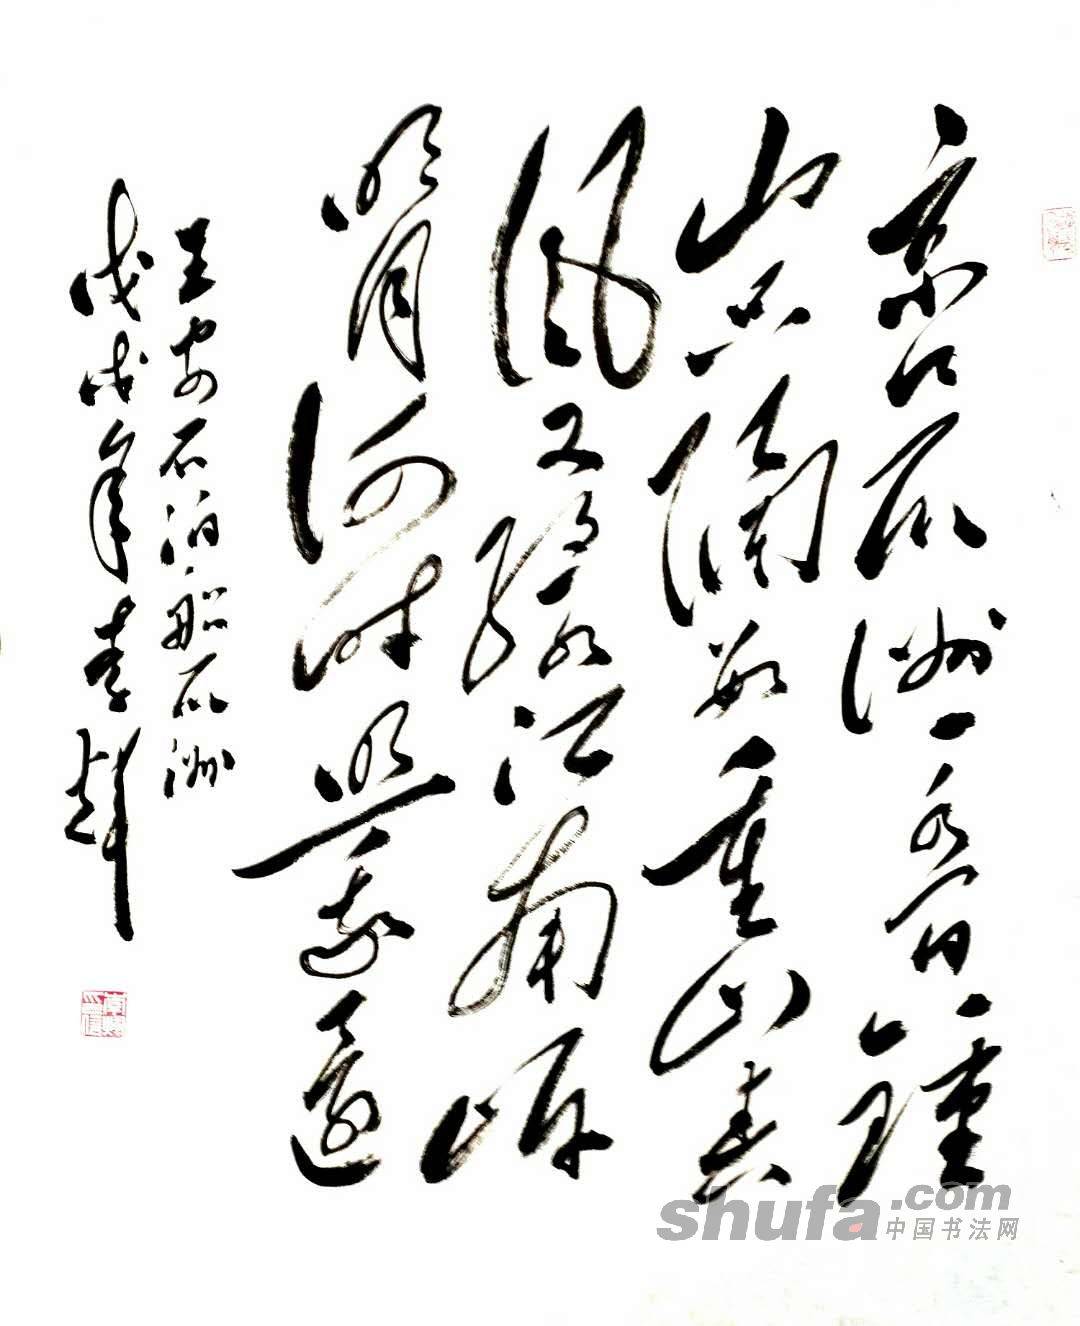 京口瓜洲一水間鍾
山只隔數重山春
風又綠江南岸
明月何時照我還
王安石泊船瓜洲
戊戌年李
shufa.com
中国书法网